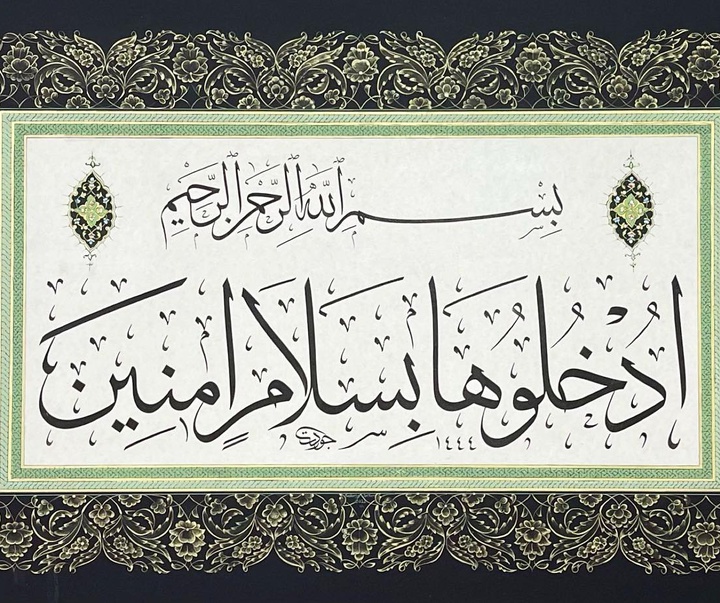 بِسْمِ اللّٰهِ الرَّحْمٰنِ الرَّحِيْمِ
اُدْخُلُوهَا بِسَلَامٍ اٰمِنِينَ
جودت ١٤٤٤